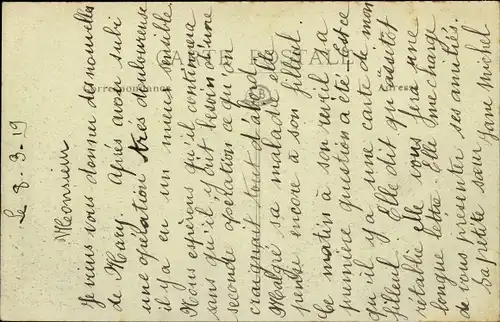 CARTE POSTALE
Correspondance
Adresse
le 8-3-19
Monsieur
Je viens vous donner de nouvelles
de Mary. Après avoir subi
une opération très douloureuse
il y a eu un mieux sensible.
Nous espérons qu'il continuera
sans qu'il y ait besoin d'une
seconde opération ce qu'on
craignait tout d'abord.
Malgré sa maladie elle
pense encore à son filleul.
Ce matin à son réveil sa
première question a été Est ce
qu'il y a une carte de mon
filleul. Elle dit qu'aussitôt
rétablie elle vous fera une
longue lettre. Elle me charge
de vous présenter ses amitiés.
La petite sœur Jane Michel